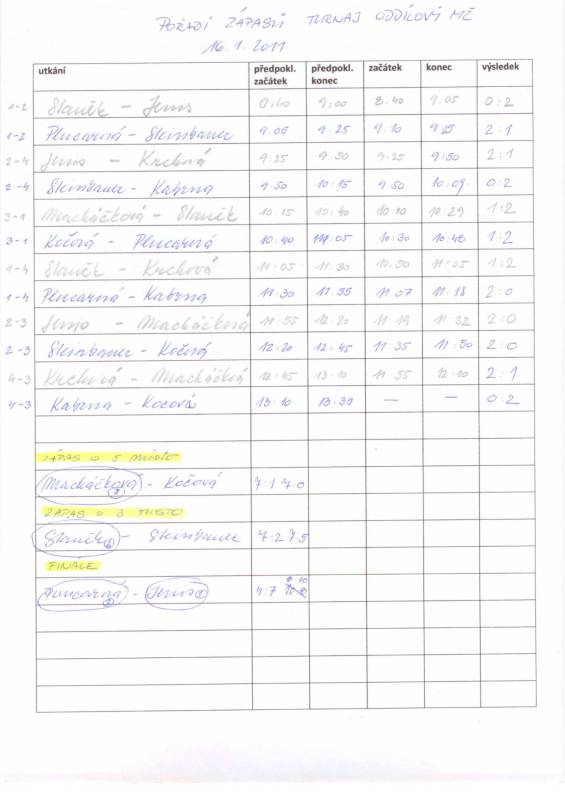 POŘADÍ ZÁPASŮ TURNAJ ODDÍLOVÝ MĚ
16.1.2011
utkání předpokl. začátek předpokl. konec začátek konec výsledek
1-2 Staněk - Jens 8:40 9:00 8:40 9:05 0:2
1-2 Plucarová - Steinbauer 9:05 9:25 9:10 9:25 2:1
2-4 Jens - Krchová 9:25 9:50 9:25 9:50 2:1
2-4 Steinbauer - Kabrna 9:50 10:15 9:50 10:09 0:2
3-1 Macháčková - Staněk 10:15 10:40 10:10 10:29 1:2
3-1 Kočová - Plucarová 10:40 11:05 10:30 10:48 1:2
1-4 Staněk - Krchová 11:05 11:30 10:50 11:05 1:2
1-4 Plucarová - Kabrna 11:30 11:55 11:07 11:18 2:0
2-3 Jens - Macháčková 11:55 12:20 11:19 11:32 2:0
2-3 Steinbauer - Kočová 12:20 12:45 11:35 11:50 2:0
4-3 Krchová - Macháčková 12:45 13:10 11:55 12:10 2:1
4-3 Kabrna - Kocová 13:10 13:35 — — 0:2
ZÁPAS O 5 místo
Macháčková - Kočová 7:1 7:0
ZÁPAS O 3 MÍSTO
Staněk - Steinbauer 7:2 7:5
FINÁLE
Plucarová - Jens 4:7 8:10